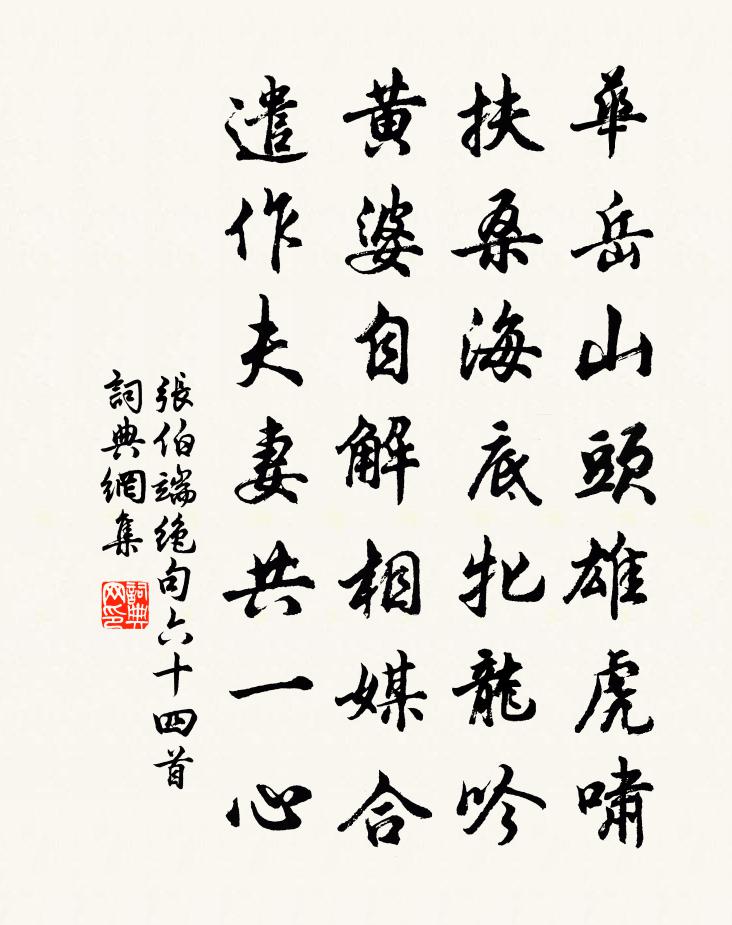 華岳山頭雄虎嘯
扶桑海底牝龍吟
黃婆自解相媒合
遣作夫妻共一心
張伯端絶句六十四首
詞典網集
詞典网印